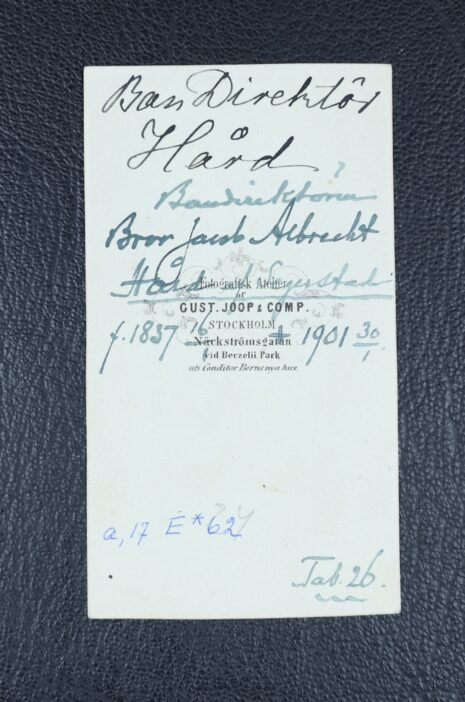 Ban Direktör
Hård
Bandirektören
Bror Jacob Albrecht
Hård af Segerstad
Fotografisk Atelier
af
GUST. JOOP & COMP.
STOCKHOLM
Näckströmsgatan
vid Berzelii Park
uti Conditor Berns nya hus.
f. 1837 + 1901 30/1
a, 17 E*62
Tab. 26.